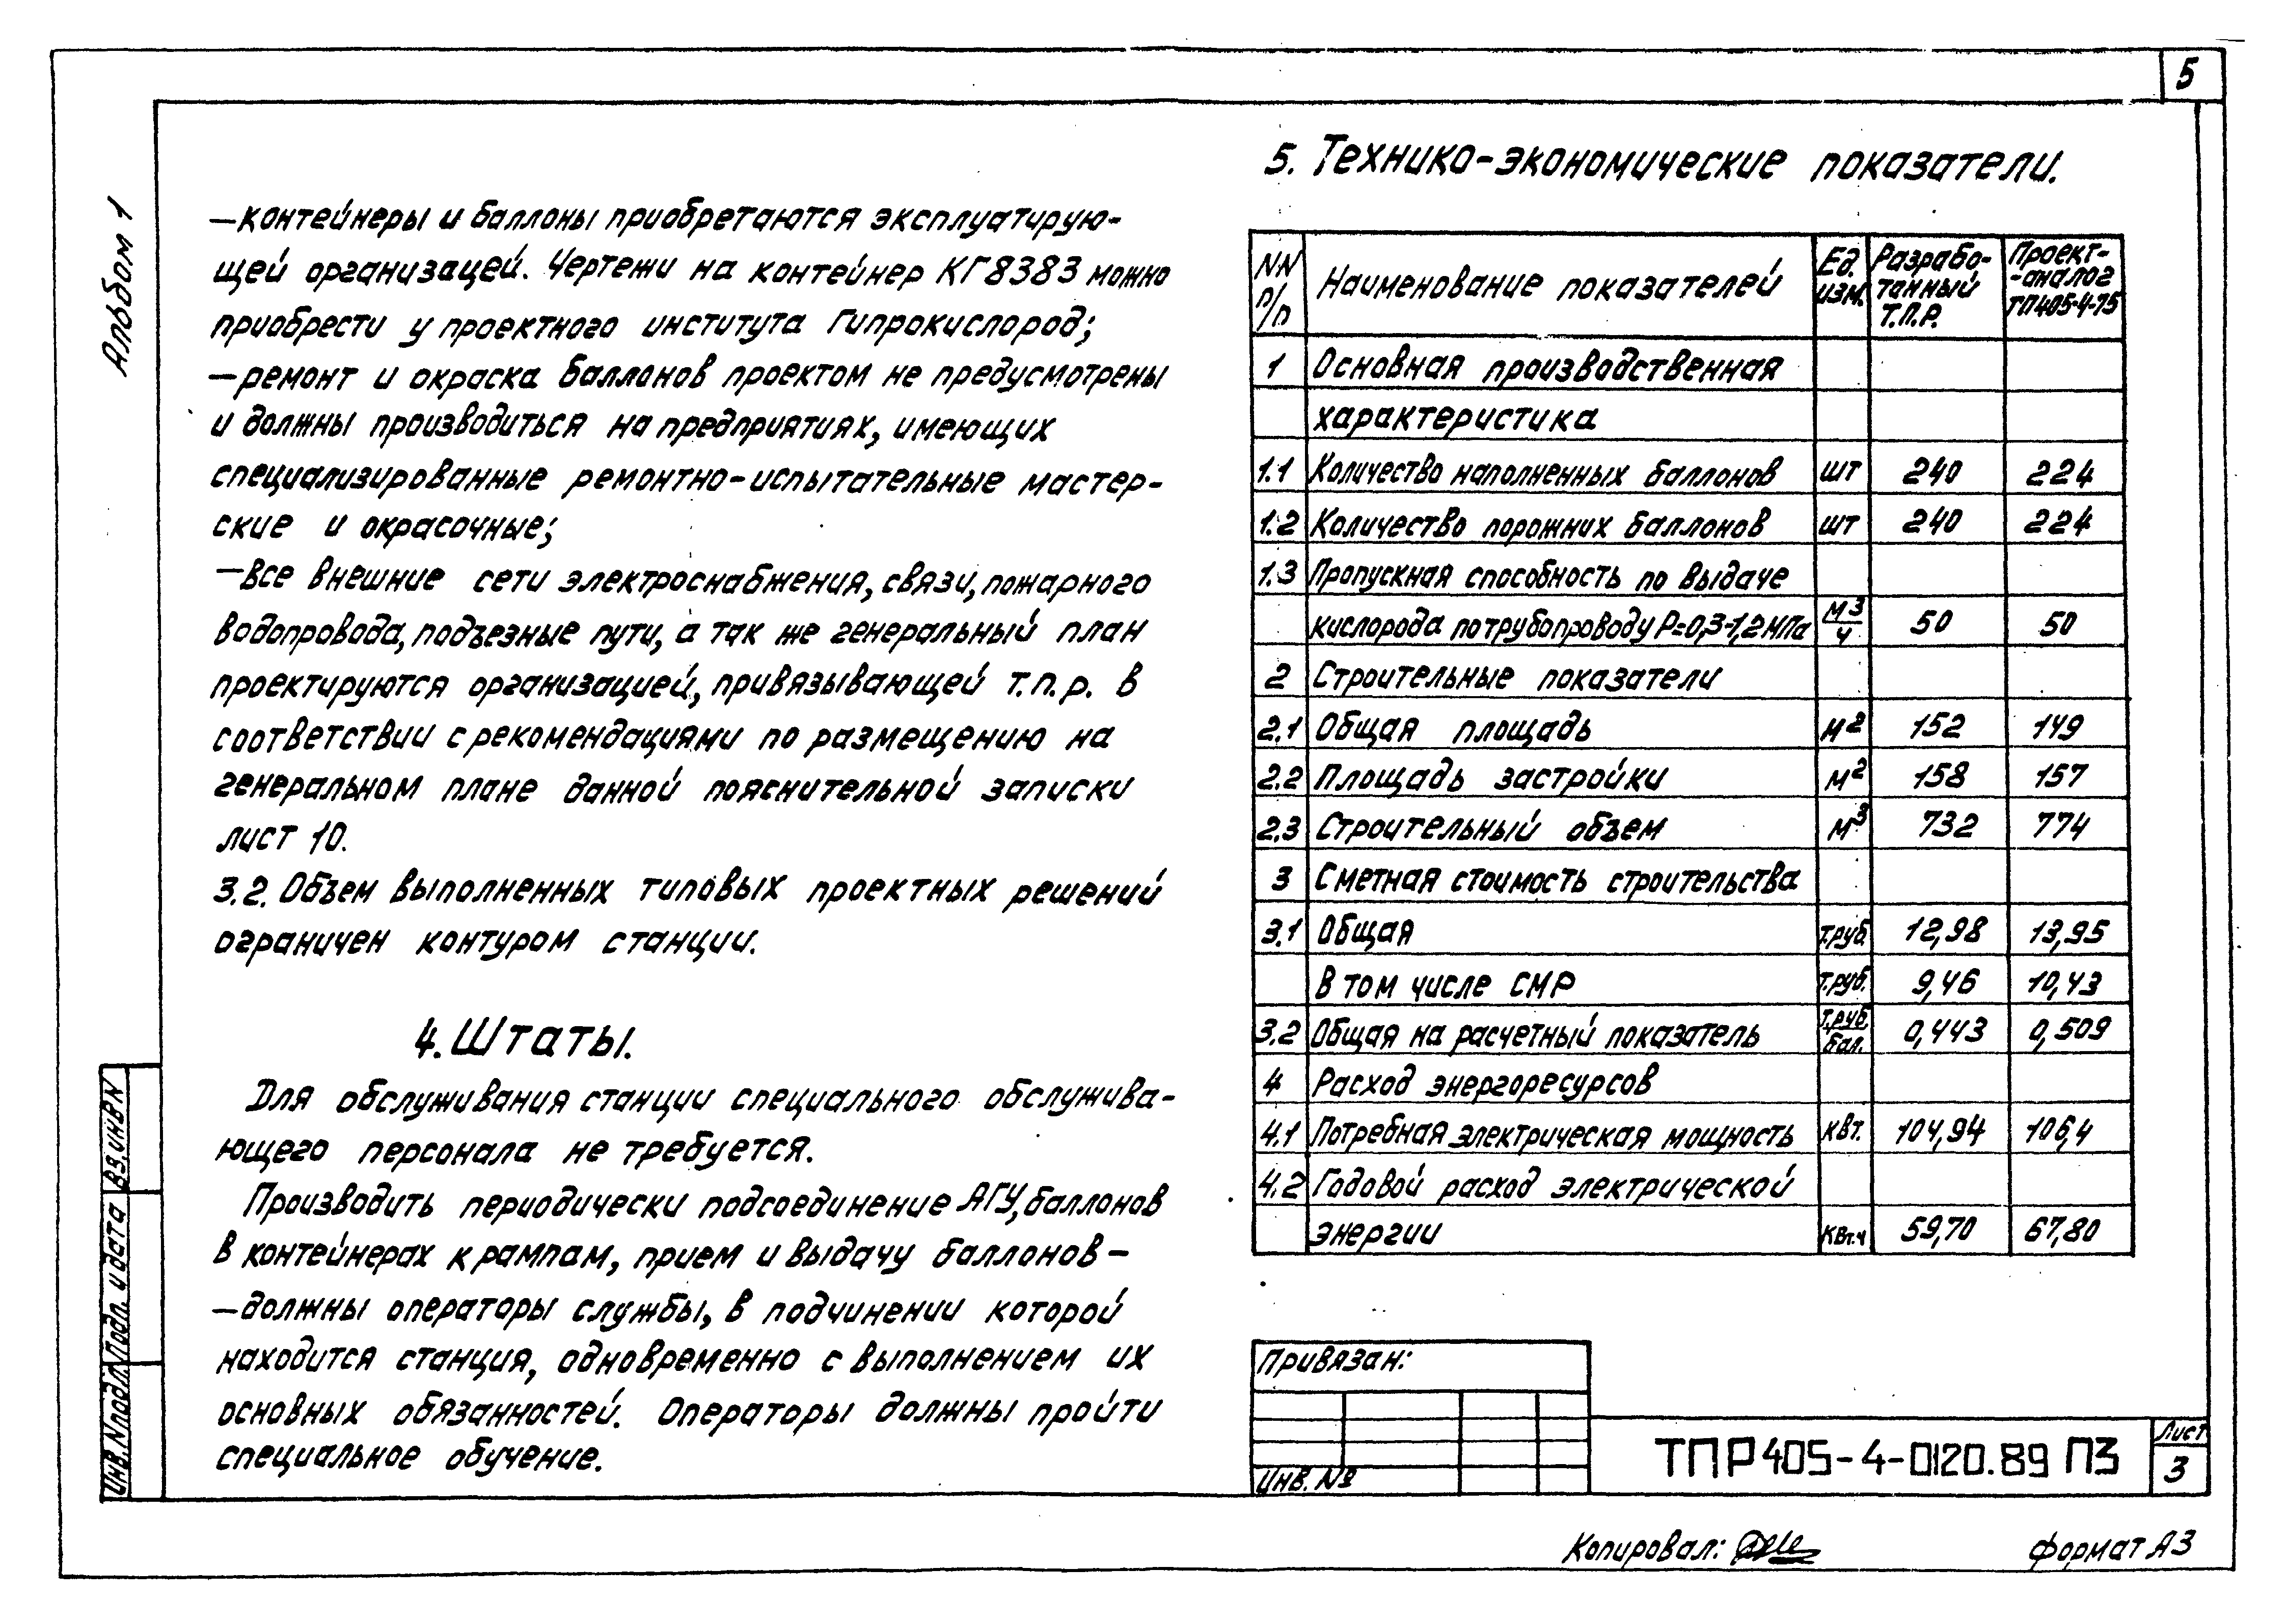 5
Альбом 1
—контейнеры и баллоны приобретаются эксплуатирую-
щей организацей. Чертежи на контейнер КГ8383 можно
приобрести у проектного института Гипрокислород;
—ремонт и окраска баллонов проектом не предусмотрены
и должны производиться на предприятиях, имеющих
специализированные ремонтно-испытательные мастер-
ские и окрасочные;
—все внешние сети электроснабжения, связи, пожарного
водопровода, подъезные пути, а так же генеральный план
проектируются организацией, привязывающей т.п.р. в
соответствии с рекомендациями по размещению на
генеральном плане данной пояснительной записки
лист 10.
3.2. Объем выполненных типовых проектных решений
ограничен контуром станции.
4. Штаты.
Для обслуживания станции специального обслужива-
ющего персонала не требуется.
Производить периодически подсоединение АГУ, баллонов
в контейнерах к рампам, прием и выдачу баллонов—
—должны операторы службы, в подчинении которой
находится станция, одновременно с выполнением их
основных обязанностей. Операторы должны пройти
специальное обучение.
5. Технико-экономические показатели.
NN п/п | Наименование показателей | Ед. изм. | Разрабо-танный Т.П.Р. | Проект--аналог ТП405-4-75
1 Основная производственная
характеристика
1.1 Количество наполненных баллонов шт 240 224
1.2 Количество порожних баллонов шт 240 224
1.3 Пропускная способность по выдаче
кислорода по трубопроводу Р=0,3-1,2 МПа м3/ч 50 50
2 Строительные показатели
2.1 Общая площадь м2 152 149
2.2 Площадь застройки м2 158 157
2.3 Строительный объем м3 732 774
3 Сметная стоимость строительства
3.1 Общая т.руб. 12,98 13,95
В том числе СМР т.руб. 9,46 10,43
3.2 Общая на расчетный показатель т.руб/бал. 0,443 0,509
4 Расход энергоресурсов
4.1 Потребная электрическая мощность кВт. 104,94 106,4
4.2 Годовой расход электрической
энергии кВт.ч 59,70 67,80
Привязан:
Инв. №
ТПР 405-4-0120.89 ПЗ
Лист
3
Инв.Nподл. Подп. и дата Вз.инв N
Копировал:
формат А3